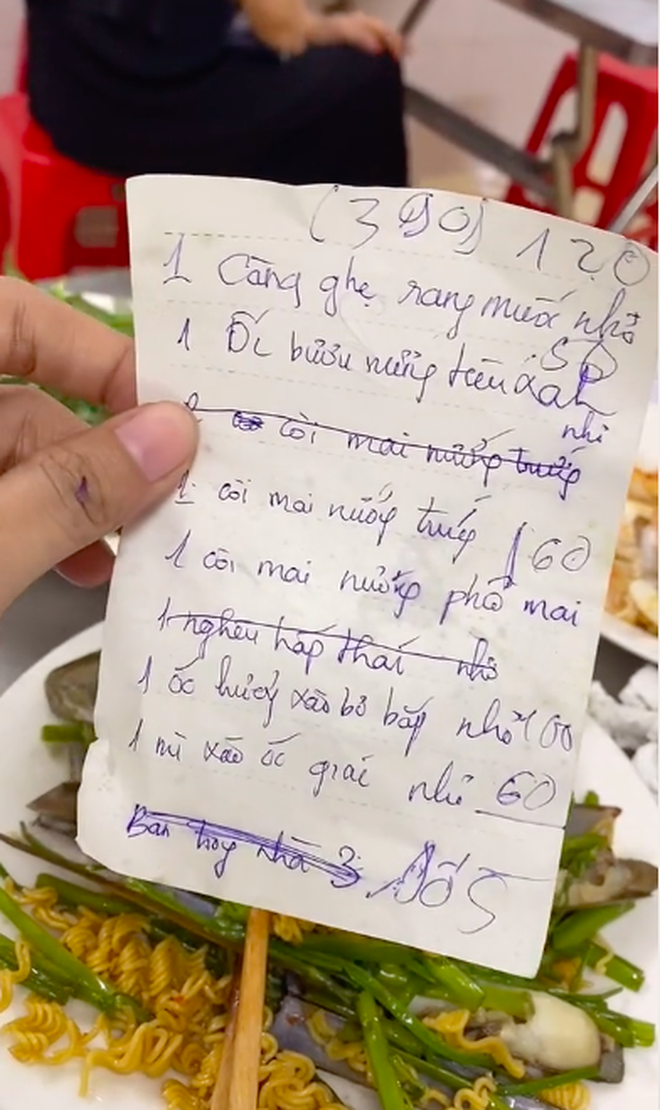 (390) 120
1 Càng ghẹ rang muối nhỏ
50
1 Ốc bươu nướng tiêu xanh
nhỏ
còi mai nướng trứng
1 còi mai nướng trứng 60
1 còi mai nướng phô mai
1 nghêu hấp thái nhỏ
1 ốc hương xào bơ bắp nhỏ 100
1 mì xào ốc giác nhỏ 60
Bàn